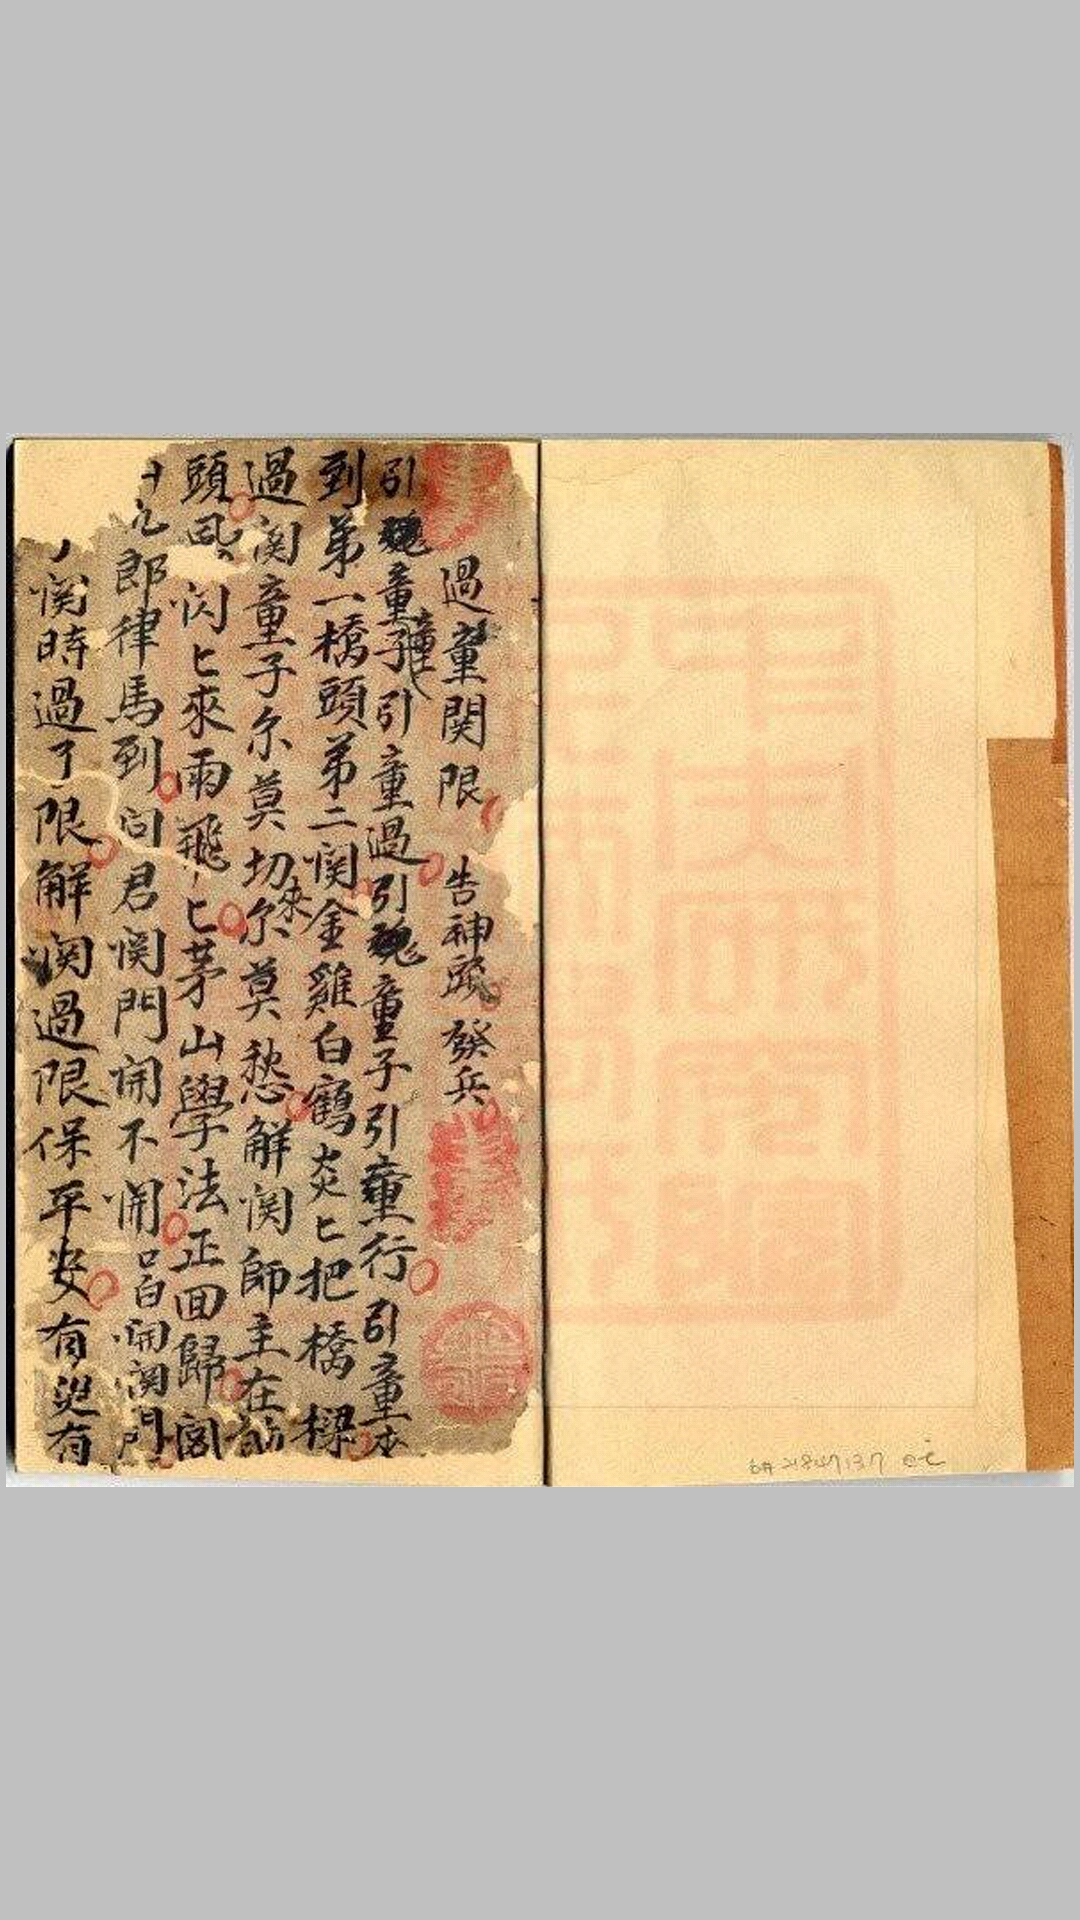 過童関限 告神 發兵
引魂童子引童過引魂童子引童行引童來
到弟一橋頭弟二関金雞白鶴炎〻把橋樑
過関童子尔莫切尔莫愁解関師主在
頭 閃〻來雨飛〻茅山學法正回歸
九郎律馬到问君関門開不開口白開関門
関時過了限解関過限保平安有災有